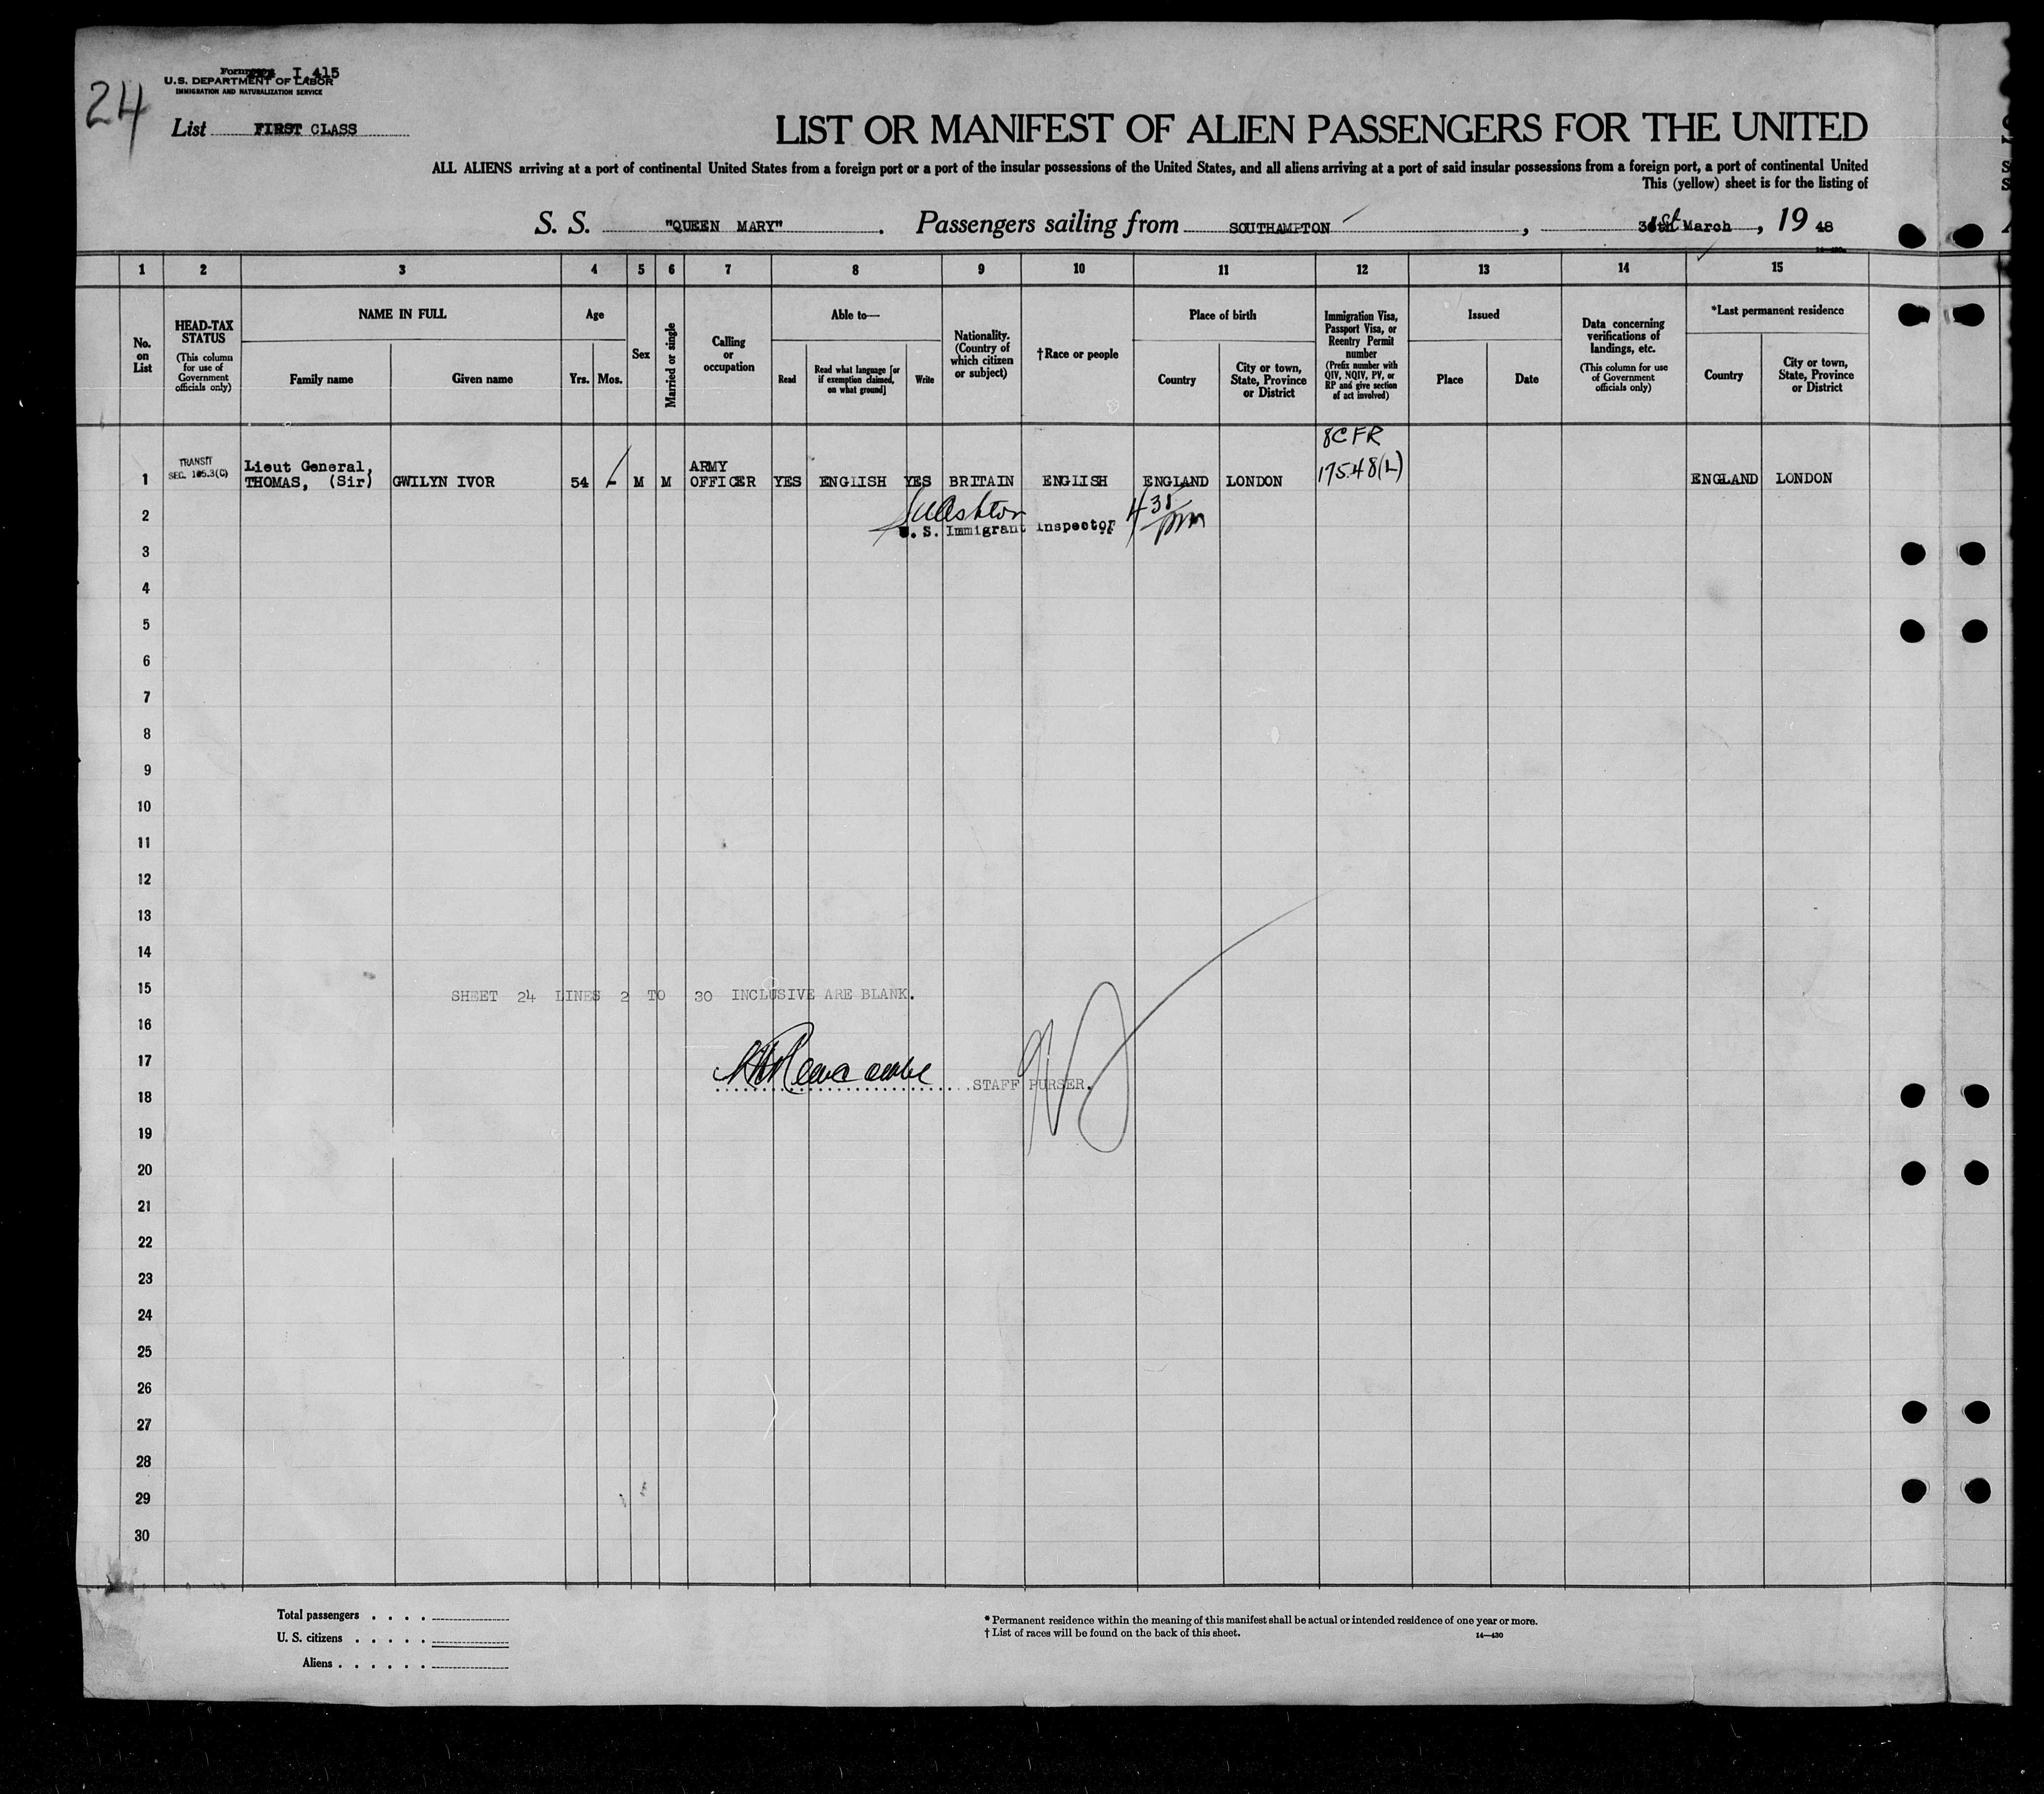 24
Form I 415
U.S. DEPARTMENT OF LABOR
IMMIGRATION AND NATURALIZATION SERVICE
List FIRST CLASS
LIST OR MANIFEST OF ALIEN PASSENGERS FOR THE UNITED
ALL ALIENS arriving at a port of continental United States from a foreign port or a port of the insular possessions of the United States, and all aliens arriving at a port of said insular possessions from a foreign port, a port of continental United
This (yellow) sheet is for the listing of
S. S. "QUEEN MARY". Passengers sailing from SOUTHAMPTON, 31st March, 19 48
1 2 3 4 5 6 7 8 9 10 11 12 13 14 15
No. on List
HEAD-TAX STATUS
(This column for use of Government officials only)
NAME IN FULL
Family name
Given name
Age
Yrs. Mos.
Sex
Married or single
Calling or occupation
Able to—
Read
Read what language [or if exemption claimed, on what ground]
Write
Nationality. (Country of which citizen or subject)
†Race or people
Place of birth
Country
City or town, State, Province or District
Immigration Visa, Passport Visa, or Reentry Permit number
(Prefix number with QIV, NQIV, PV, or RP and give section of act involved)
Issued
Place
Date
Data concerning verifications of landings, etc.
(This column for use of Government officials only)
*Last permanent residence
Country
City or town, State, Province or District
8CFR
TRANSIT Lieut General, ARMY 175.48(L)
1 SEC. 105.3(C) THOMAS, (Sir) GWILYN IVOR 54 - M M OFFICER YES ENGLISH YES BRITAIN ENGLISH ENGLAND LONDON ENGLAND LONDON
2 U. S. Immigrant Inspector 4 30 pm
3
4
5
6
7
8
9
10
11
12
13
14
15 SHEET 24 LINES 2 TO 30 INCLUSIVE ARE BLANK.
16
17
STAFF PURSER.
18
19
20
21
22
23
24
25
26
27
28
29
30
Total passengers . . . .
U. S. citizens . . . . .
Aliens . . . . . .
* Permanent residence within the meaning of this manifest shall be actual or intended residence of one year or more.
† List of races will be found on the back of this sheet.
14—430